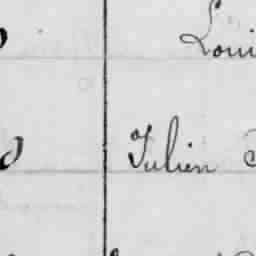 Loui
Julien